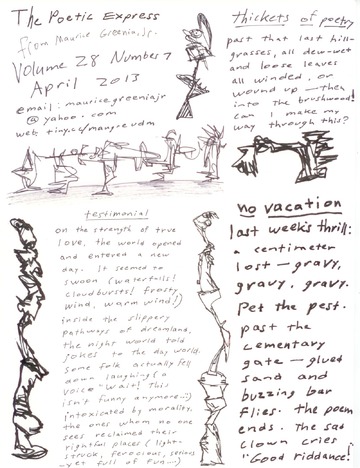 The Poetic Express
from Maurice Greenia, Jr.
Volume 28 Number 7
April 2013
email: mauricegreeniajr
@yahoo.com
web tiny.cc/mangreudm
thickets of poetry
past that last hill-
grasses, all dew-wet
and loose leaves
all winded, or
wound up—then
into the brushwood!
Can I make my
way through this?
testimonial
on the strength of true
love, the world opened
and entered a new
day. It seemed to
swoon (waterfalls!
cloudbursts! frosty
wind, warm wind!)
inside the slippery
pathways of dreamland,
the night world told
jokes to the day world.
Some folk actually fell
down laughing (a
voice "wait! This
isn't funny anymore...)
intoxicated by morality,
the ones whom no one
sees reclaimed their
rightful places (light-
struck, ferocious, serious
—yet full of fun...)
no vacation
last week's thrill:
a centimeter
lost—gravy,
gravy, gravy.
Pet the pest.
past the
cementary
gate—glued
sand and
buzzing bar
flies. the poem
ends. The sad
clown cries
"Good riddance!"